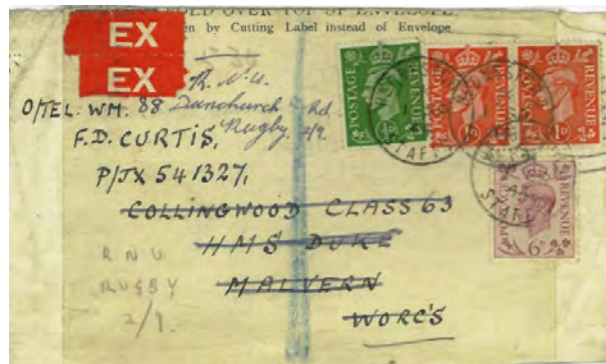 HOLD OVER TOP OF ENVELOPE
en by Cutting Label instead of Envelope
EX
EX
R.N.U.
O/TEL. WM. 88 Dunchurch Rd
F.D. CURTIS, Rugby 2/9.
P/JX 541327,
COLLINGWOOD CLASS 63
HMS DUKE
MALVERN
WORC'S
RNU
RUGBY
2/9.
POSTAGE
REVENUE
REVENUE
1D
REVENUE
6D
STAFF
45
STAFF